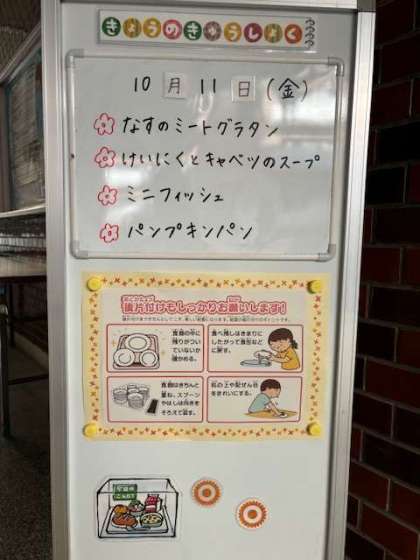 きょうのきゅうしょく
10月11日(金)
なすのミートグラタン
けいにくとキャベツのスープ
ミニフィッシュ
パンプキンパン
後片付けもしっかりお願いします!
食器の中に
残りがつい
ていないか
確かめる。
食べ残しはきまりに
したがって食缶などに
戻す。
食器はきちんと
重ね、スプーン
やはしは向きを
そろえて返す。
机の上や配ぜん台
をきれいにする。